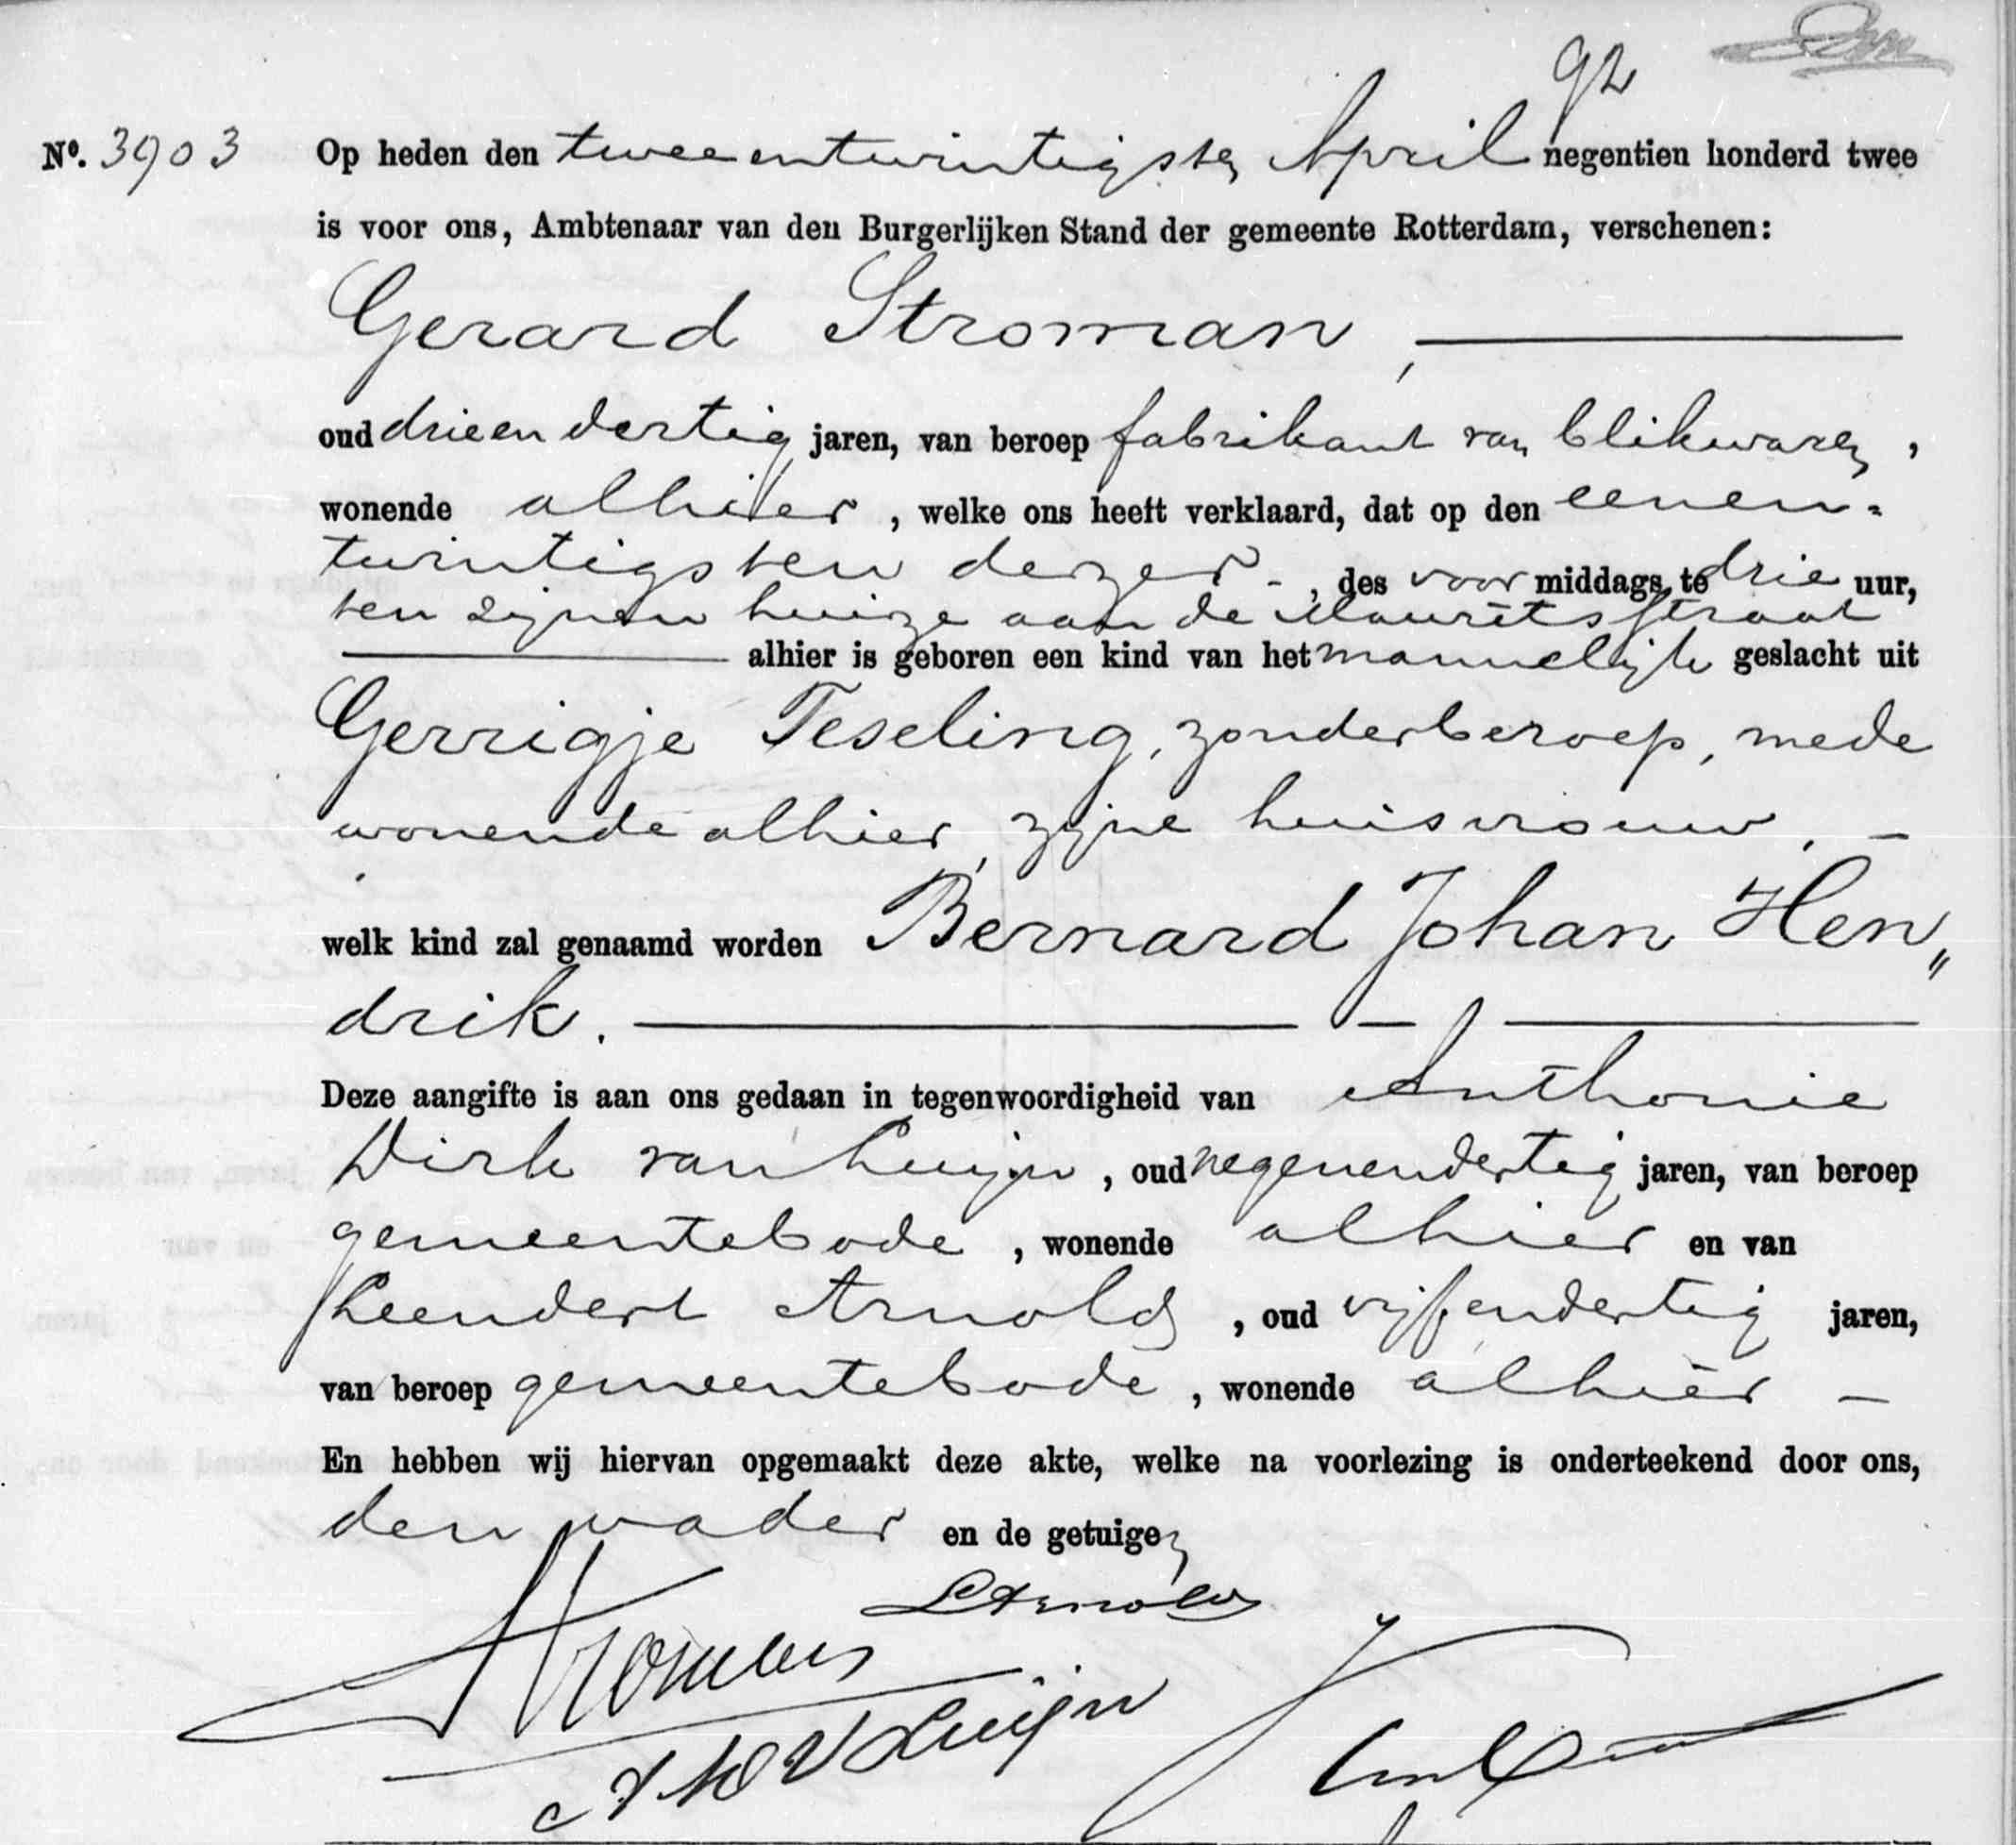 92
No. 3903 Op heden den tweeentwintigsten April negentien honderd twee
is voor ons, Ambtenaar van den Burgerlijken Stand der gemeente Rotterdam, verschenen:
Gerard Stroman,
oud drieendertig jaren, van beroep fabrikant van blikwaren,
wonende alhier, welke ons heeft verklaard, dat op den eenen-
twintigsten dezer, des voormiddags te drie uur,
ten zijnen huize aan de Mauritsstraat
alhier is geboren een kind van het mannelijk geslacht uit
Gerrigje Teseling, zonder beroep, mede
wonende alhier, zijne huisvrouw,
welk kind zal genaamd worden Bernard Johan Hen„
drik.
Deze aangifte is aan ons gedaan in tegenwoordigheid van Anthonie
Dirk van Luijn, oud negenendertig jaren, van beroep
gemeentebode, wonende alhier en van
Leendert Arnolds, oud vijfendertig jaren,
van beroep gemeentebode, wonende alhier
En hebben wij hiervan opgemaakt deze akte, welke na voorlezing is onderteekend door ons,
den vader en de getuigen
LArnolds
Stroman
A D V Luijn